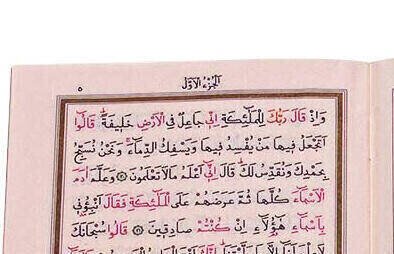 الجزء الاول
٥
وَاِذْ قَالَ رَبُّكَ لِلْمَلٰٓئِكَةِ اِنّ۪ي جَاعِلٌ فِي الْاَرْضِ خَل۪يفَةًۜ قَالُٓوا
اَتَجْعَلُ ف۪يهَا مَنْ يُفْسِدُ ف۪يهَا وَيَسْفِكُ الدِّمَٓاءَۚ وَنَحْنُ نُسَبِّحُ
بِحَمْدِكَ وَنُقَدِّسُ لَكَۜ قَالَ اِنّ۪ٓي اَعْلَمُ مَا لَا تَعْلَمُونَ وَعَلَّمَ اٰدَمَ
الْاَسْمَٓاءَ كُلَّهَا ثُمَّ عَرَضَهُمْ عَلَى الْمَلٰٓئِكَةِ فَقَالَ اَنْبِؤُ۫ن۪ي
بِاَسْمَٓاءِ هٰٓؤُ۬لَٓاءِ اِنْ كُنْتُمْ صَادِق۪ينَ قَالُوا سُبْحَانَكَ